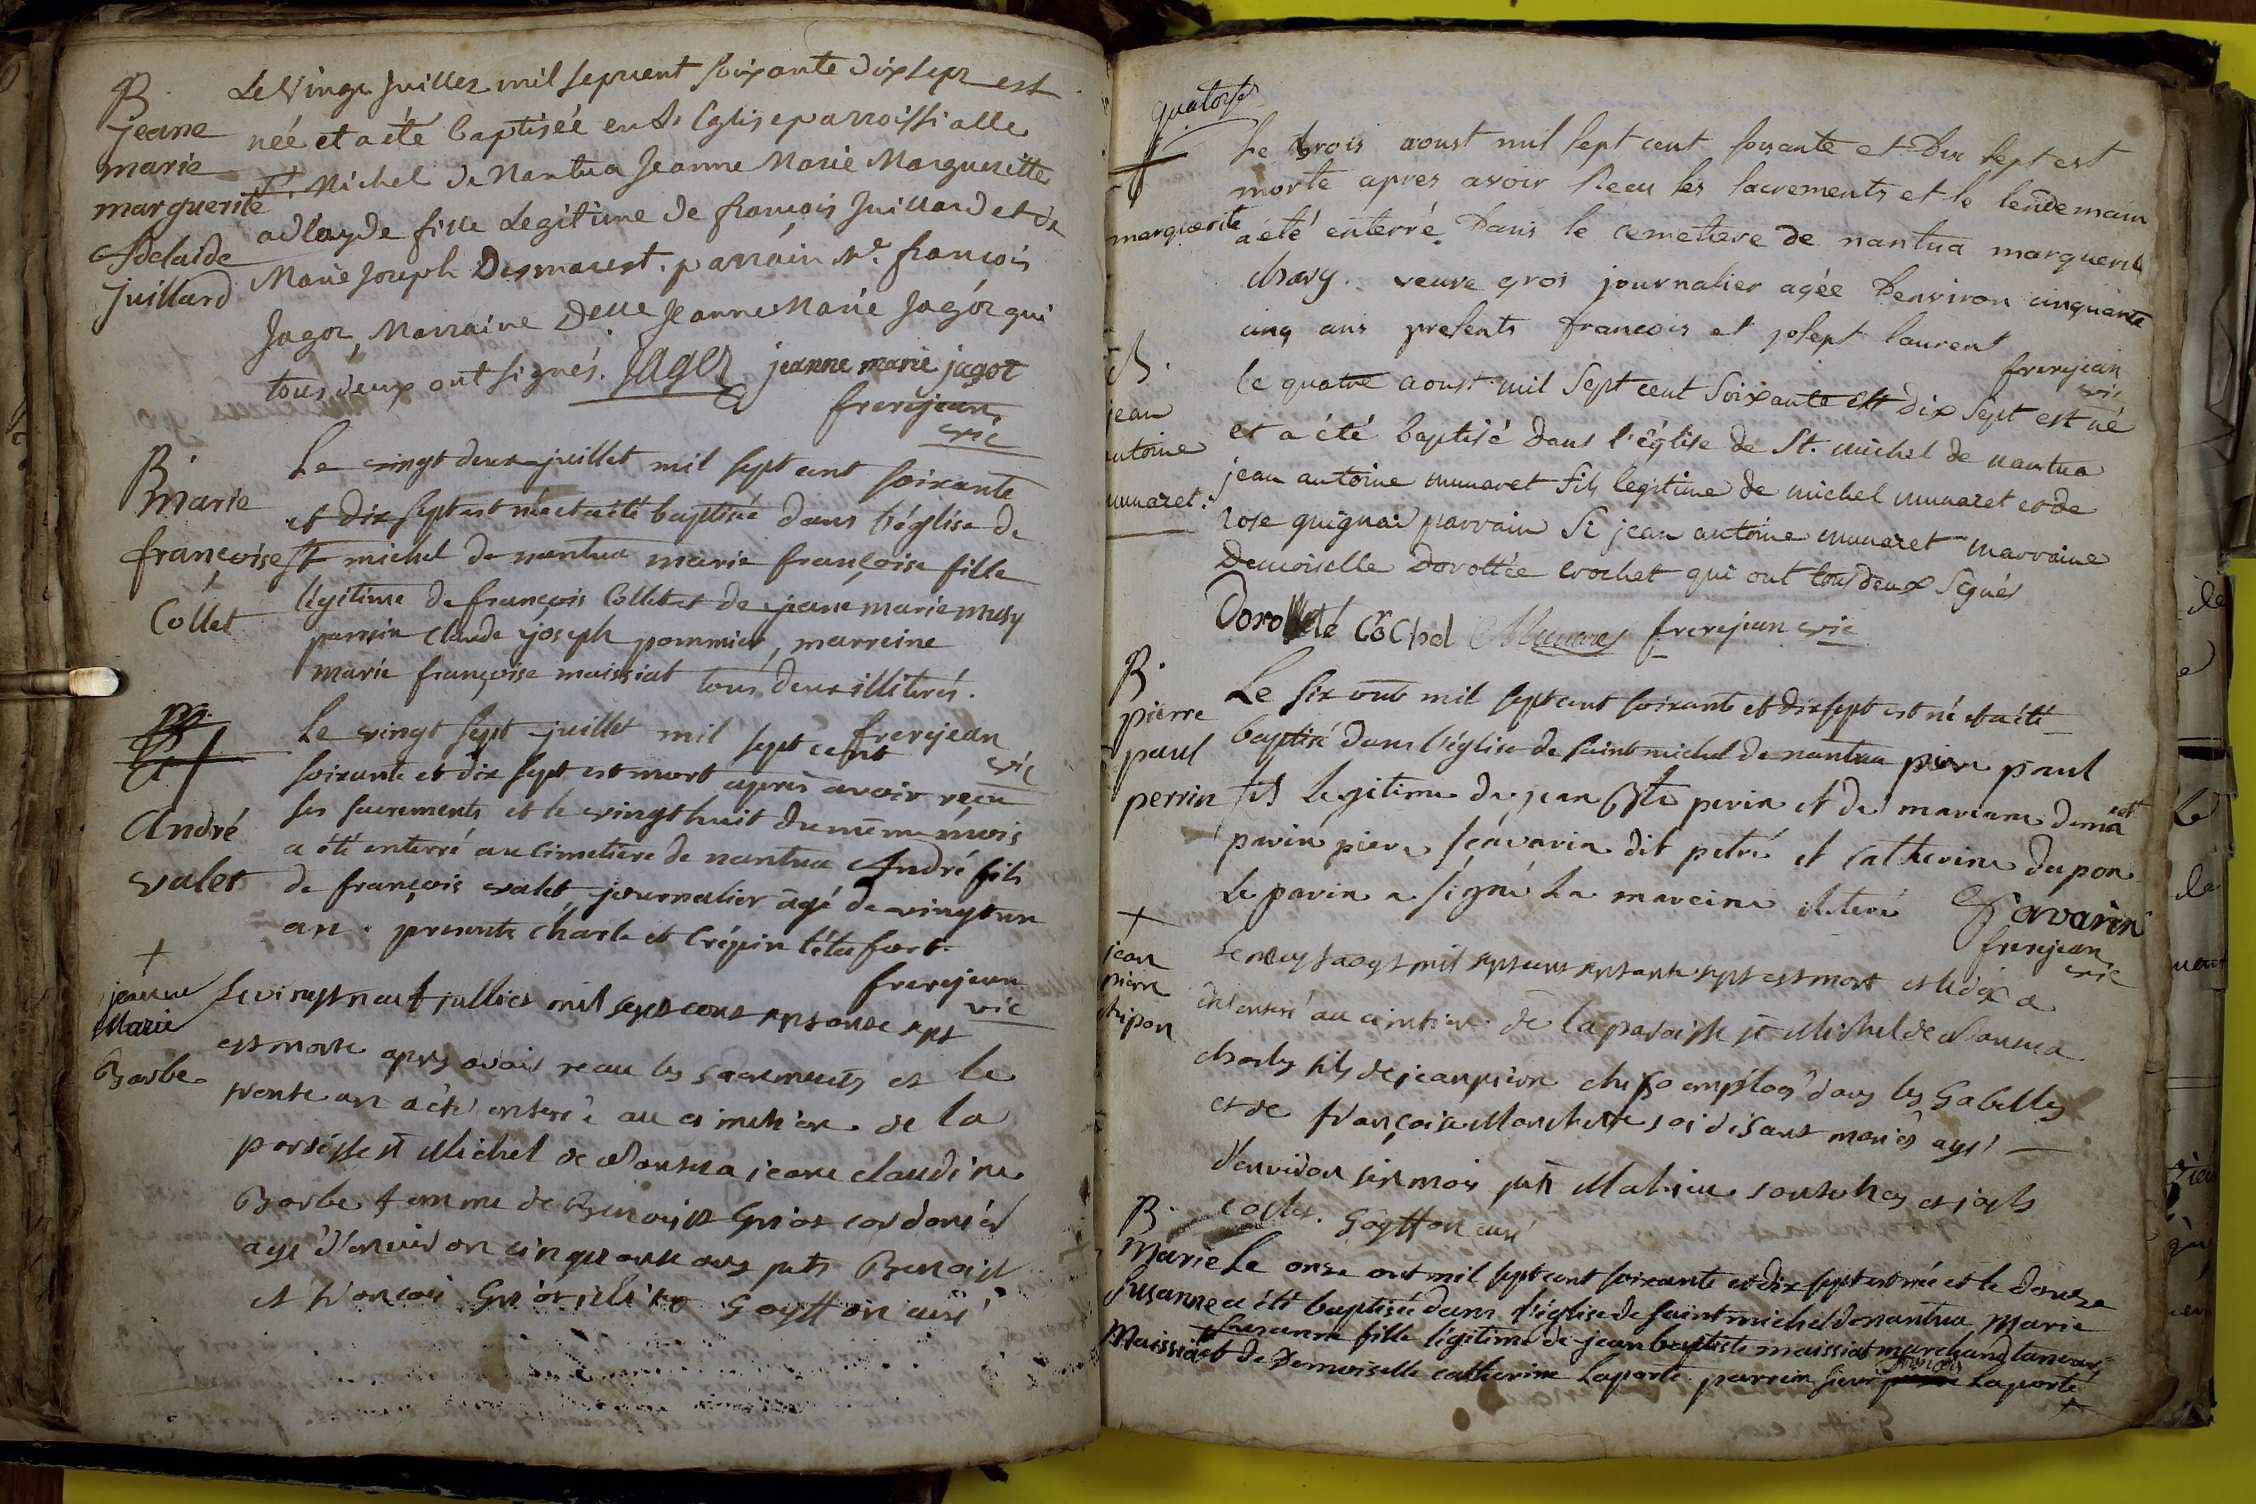 B.
jeane
marie
marguerite
Adelaide
juillard
Le Vingt Juillet mil sepcent soixante dix sept est
née et a eté baptisée en L'Eglise parroissialle
St. Michel de Nantua Jeanne Marie Marguerite
adlayde fille Legitime de francois Juillard et de
Marie Joseph Desmarest. parrain Sr. francois
Jagot, Marraine Delle Jeanne Marie Jagot qui
tous deux ont signés. Jagot jeanne marie jagot
frerejean
vic
B.
marie
françoise
Collet
Le vingt deux juillet mil sept cent soixante
et dix sept est née et a été baptisée dans l'église de
St michel de nantua marie françoise fille
légitime de françois Collet et de jeane marie musy
parrein Claude joseph pommier, marreine
marie françoise maissiat tous deux illiterés.
frerejean
vic
André
valet
Le vingt sept juillet mil sept cent
soixante et dix sept est mort après avoir reçu
ses sacrements et le vingt huit du même mois
a été enterré au cimetiere de nantua André fils
de françois valet journalier âgé de vingt un
an. présents Charle et Crépin
frerejean
vic
+
jeanne
Marie
Barbe
Le vingt neuf julliet mil sept cent septante sept
est morte apres avoir receu les sacrements et le
trente un a été enterée au cimetiere de la
paroisse st Michel de Nantua jeane claudine
Barbe femme de Benoist Griot cordonier
agé d'environ cinquante ans pnts Benoist
et francois Griot Goytton curé
quatorse
+
marguerite
Le trois aoust mil sept cent soixante et Dix sept est
morte apres avoir Recu les sacrements et le lendemain
a eté enterré Dans le cemetiere de nantua marguerite
chavy veuve gros journalier agée Denviron cinquante
cinq ans presents francois et josept laurent
frerejean
vic
B.
jean
antoine
munaret.
le quatre aoust mil sept cent soixante et dix sept est né
et a été baptisé dans l'église de St. michel de nantua
jean antoine munaret fils legitime de michel munaret et de
rose guignai parrain Sr jean antoine munaret marraine
Demoiselle Dorottée crochet qui ont tous deux signés
Dorotté Crochet Munaret frerejean vic
B.
pierre
paul
perrin
Le six out mil sept cent soixante et dix sept est né et a été
baptisé dans l'église de saint michel de nantua pierre paul
fils Legitime de jean Bte perin et de mariane
parin piere savarin dit petré et Catherine dupon
Le parin a signé La mareine iliteré Savarin
frerejean
vic
+
jean
pierre
Le neuf aoust mil sept cent septante sept est mort et le dix a
été enteré au cimetiere de la paroisse st Michel de Nantua
charles fils de jean pierre employé dans les Gabelles
et de françoise soi disant mariés agé
d'environ six mois pnts Mathieu et
Goytton curé
B.
Marie
Susanne
Maissiat
Le onze out mil sept cent soixante et dix sept est née et le douze
a été baptisée dans l'église de saint michel de nantua Marie
susanne fille légitime de jean baptiste maissiat marchand taneur
et de Demoiselle catherine Laporte. parrein sieur françois Laporte